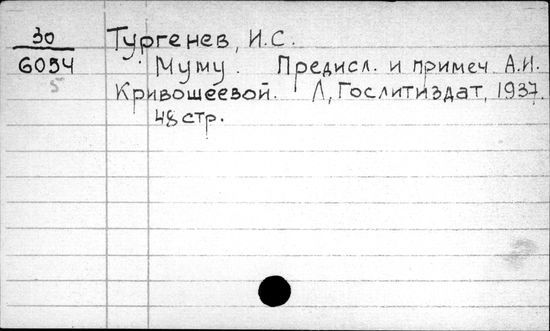 30
6054
5
Тургенев, И.С.
Муму. Предисл. и примеч А.И.
Кривошеевой. Л, Гослитиздат, 1937.
48 стр.